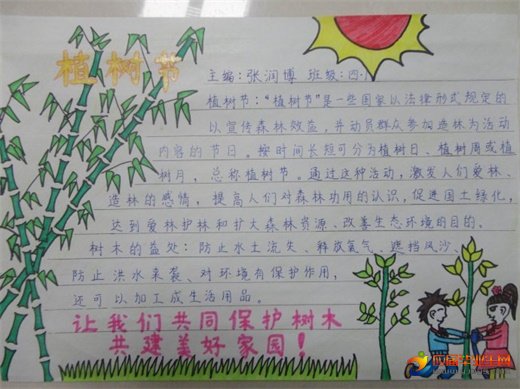 植树节
主编:张润博 班级:四.1
植树节:“植树节”是一些国家以法律形式规定的
以宣传森林效益,并动员群众参加造林为活动
内容的节日。按时间长短可分为植树日、植树周或植
树月,总称植树节。通过这种活动,激发人们爱林、
造林的感情,提高人们对森林功用的认识,促进国土绿化,
达到爱林护林和扩大森林资源、改善生态环境的目的。
树木的益处:防止水土流失、释放氧气、遮挡风沙、
防止洪水来袭、对环境有保护作用,
还可以加工成生活用品。
让我们共同保护树木
共建美好家园!
应届毕业生网